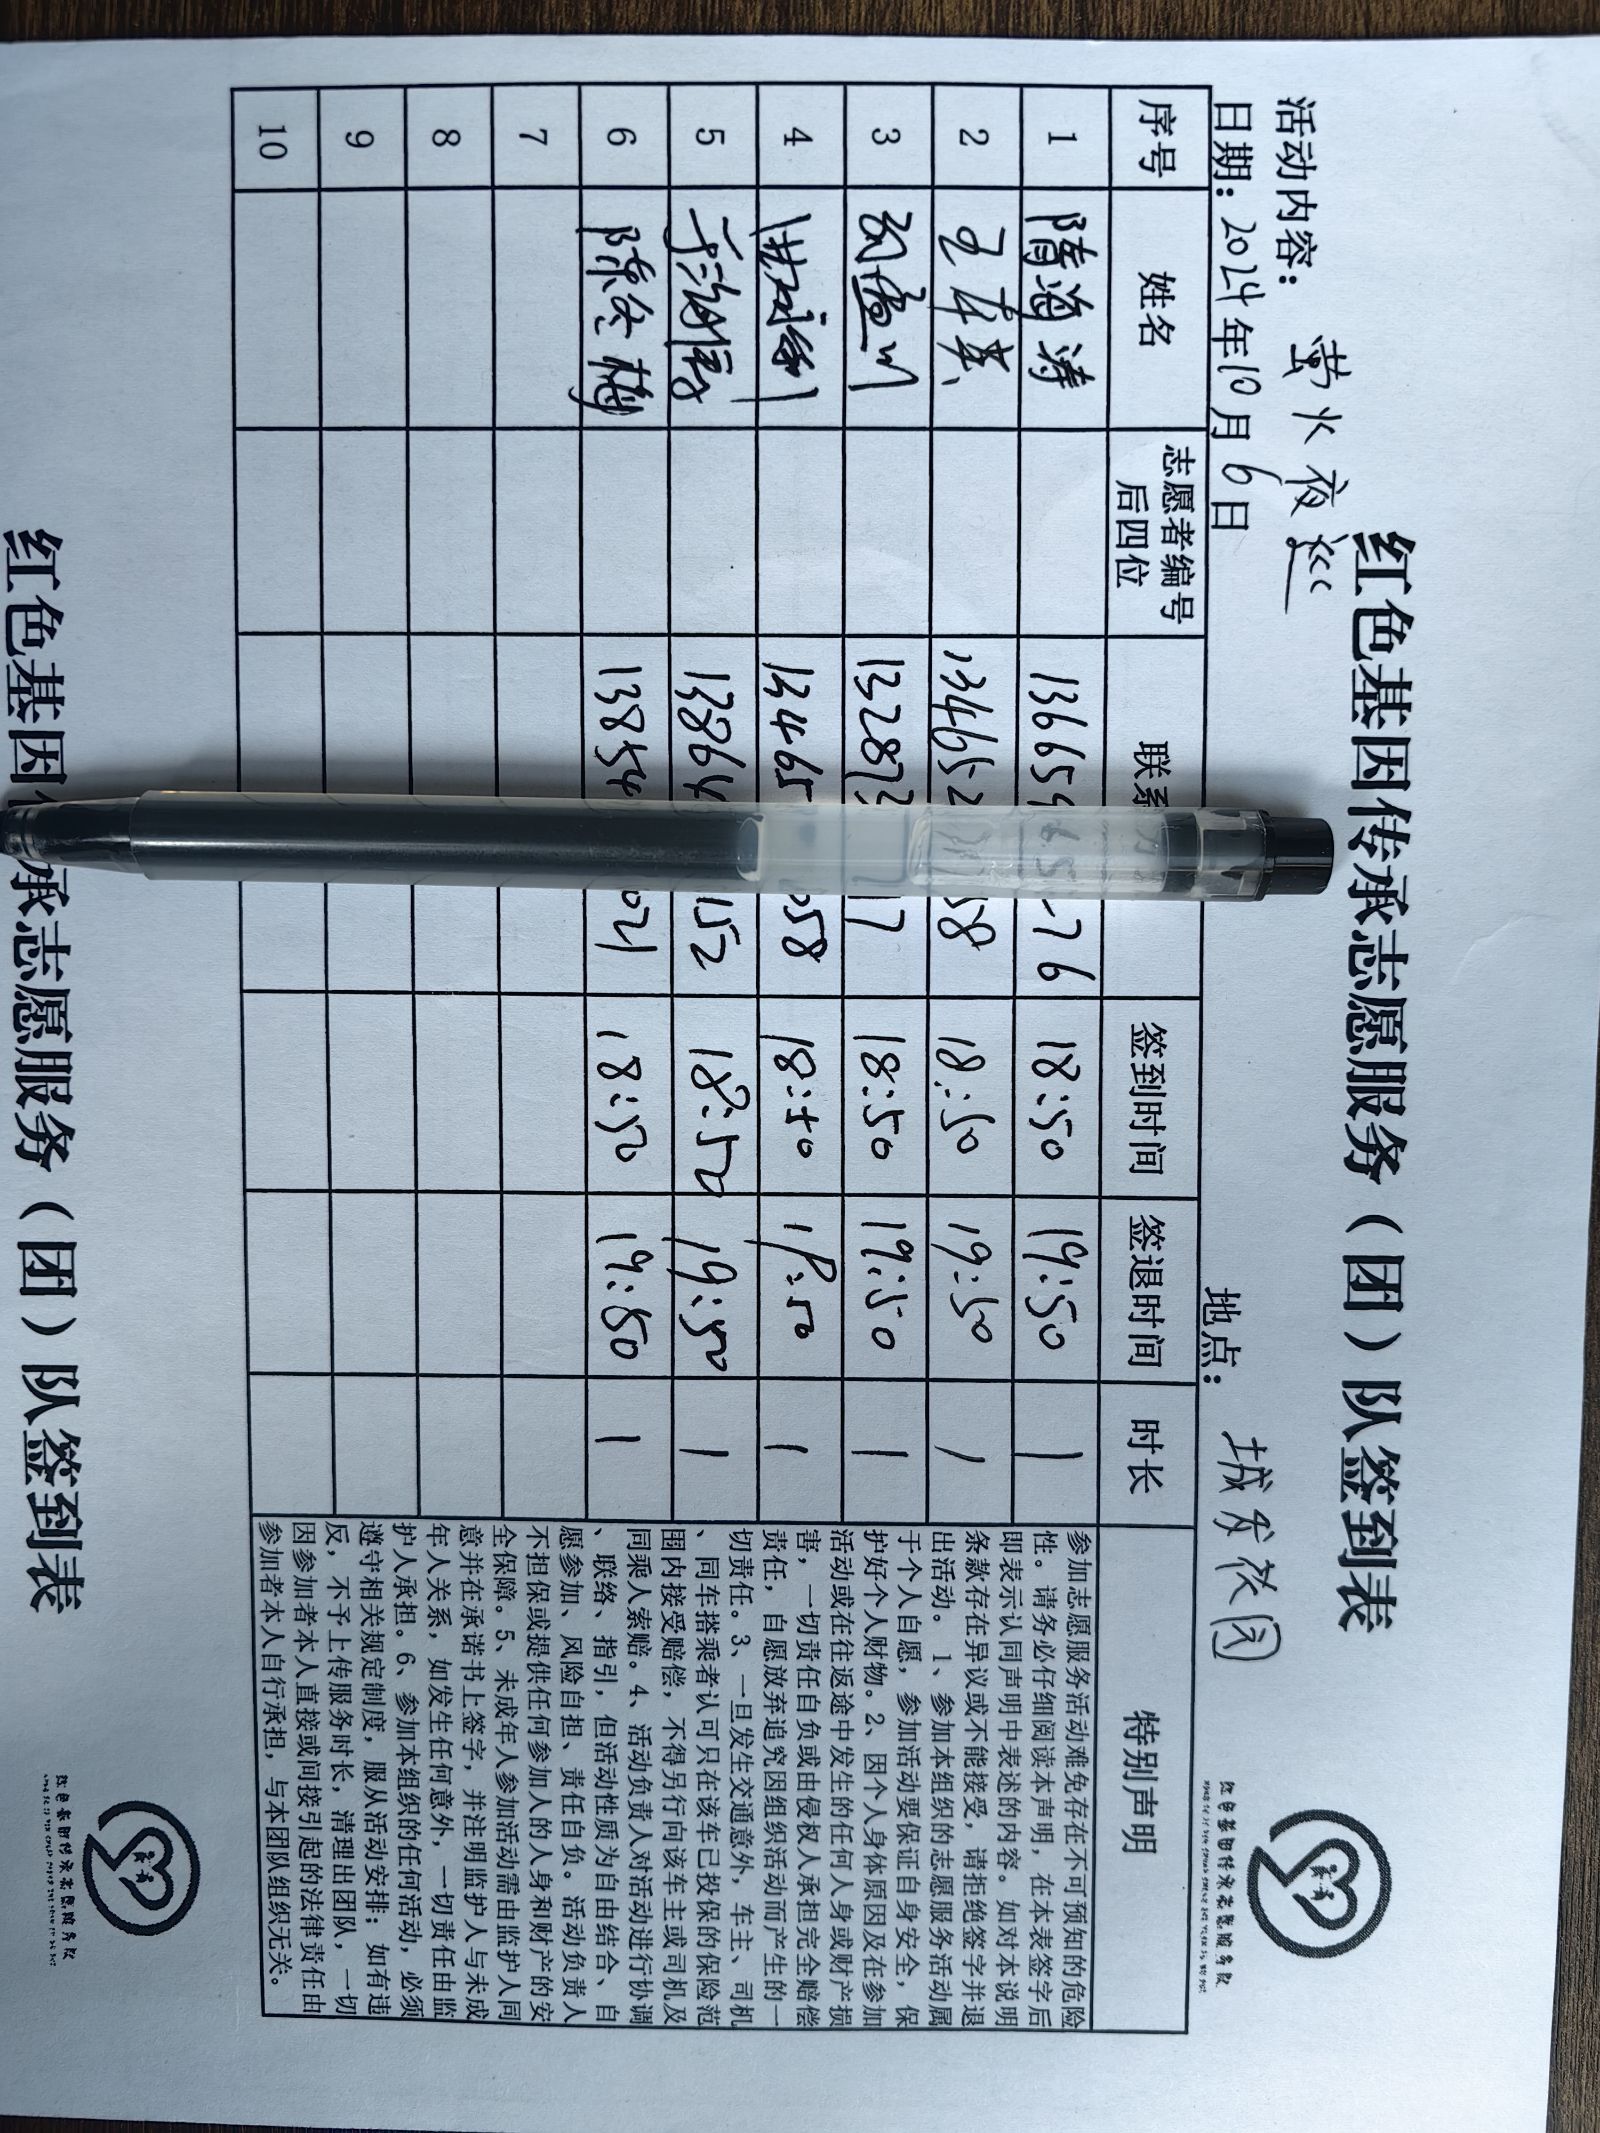 红色基因传承志愿服务（团）队签到表
活动内容：萤火夜巡
日期：2024年10月6日 地点：城发花园
序号 姓名 志愿者编号后四位 联系方 签到时间 签退时间 时长 特别声明
1 隋海涛 13665 76 18:50 19:50 1
2 王春英 134652 58 18:50 19:50 1
3 132873 17 18:50 19:50 1
4 13465 058 18:50 19:50 1
5 13864 152 18:50 19:50 1
6 陈冬梅 13854 021 18:50 19:50 1
7
8
9
10
参加志愿服务活动难免存在不可预知的危险
性。请务必仔细阅读本声明，在本表签字后
即表示认同声明中表述的内容。如对本说明
条款存在异议或不能接受，请拒绝签字并退
出活动。1、参加本组织的志愿服务活动属
于个人自愿，参加活动要保证自身安全，保
护好个人财物。2、因个人身体原因及在参加
活动或在往返途中发生的任何人身或财产损
害，一切责任自负或由侵权人承担完全赔偿
责任，自愿放弃追究因组织活动而产生的一
切责任。3、一旦发生交通意外，车主、司机
、同车搭乘者认可只在该车已投保的保险范
围内接受赔偿，不得另行向该车主或司机及
同乘人索赔。4、活动负责人对活动进行协调
、联络、指引，但活动性质为自由结合、自
愿参加、风险自担、责任自负。活动负责人
不担保或提供任何参加人的人身和财产的安
全保障。5、未成年人参加活动需由监护人同
意并在承诺书上签字，并注明监护人与未成
年人关系，如发生任何意外，一切责任由监
护人承担。6、参加本组织的任何活动，必须
遵守相关规定制度，服从活动安排；如有违
反，不予上传服务时长，清理出团队，一切
因参加者本人直接或间接引起的法律责任由
参加者本人自行承担，与本团队组织无关。
红色基因传承志愿服务队
红色基因 承志愿服务（团）队签到表
红色基因传承志愿服务队